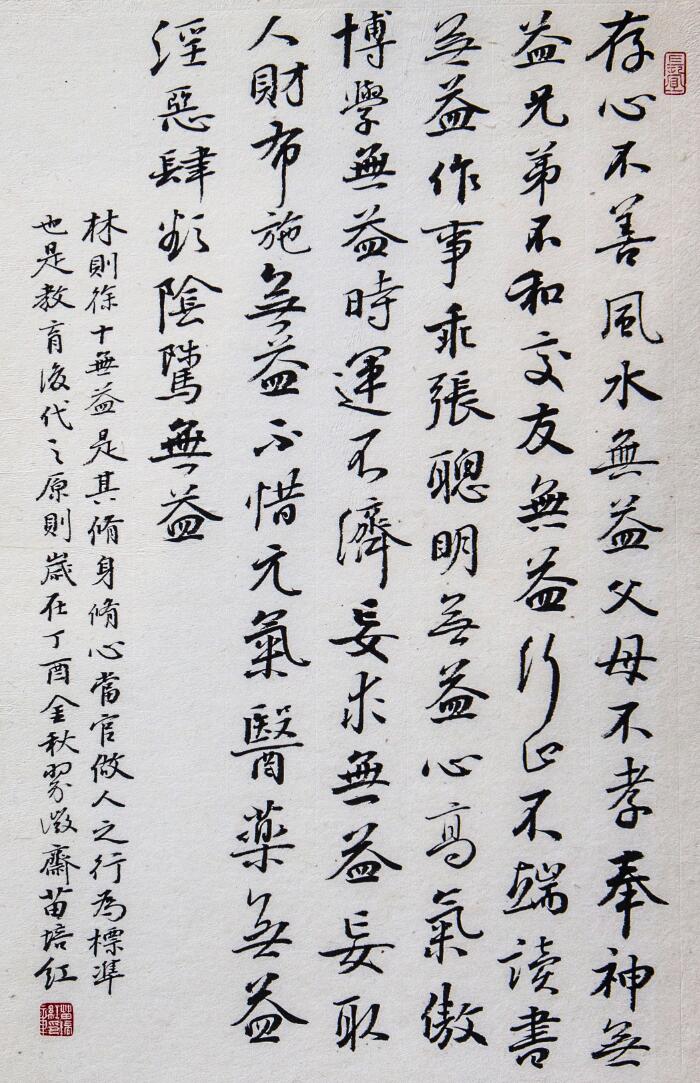 存心不善風水無益父母不孝奉神無
益兄弟不和交友無益行止不端讀書
無益作事乖張聰明無益心高氣傲
博學無益時運不濟妄求無益妄取
人財布施無益不惜元氣醫薬無益
淫惡肆欲陰騭無益
林則徐十無益是其脩身脩心當官做人之行為標準
也是教育後代之原則歲在丁酉金秋澂齋苗培红